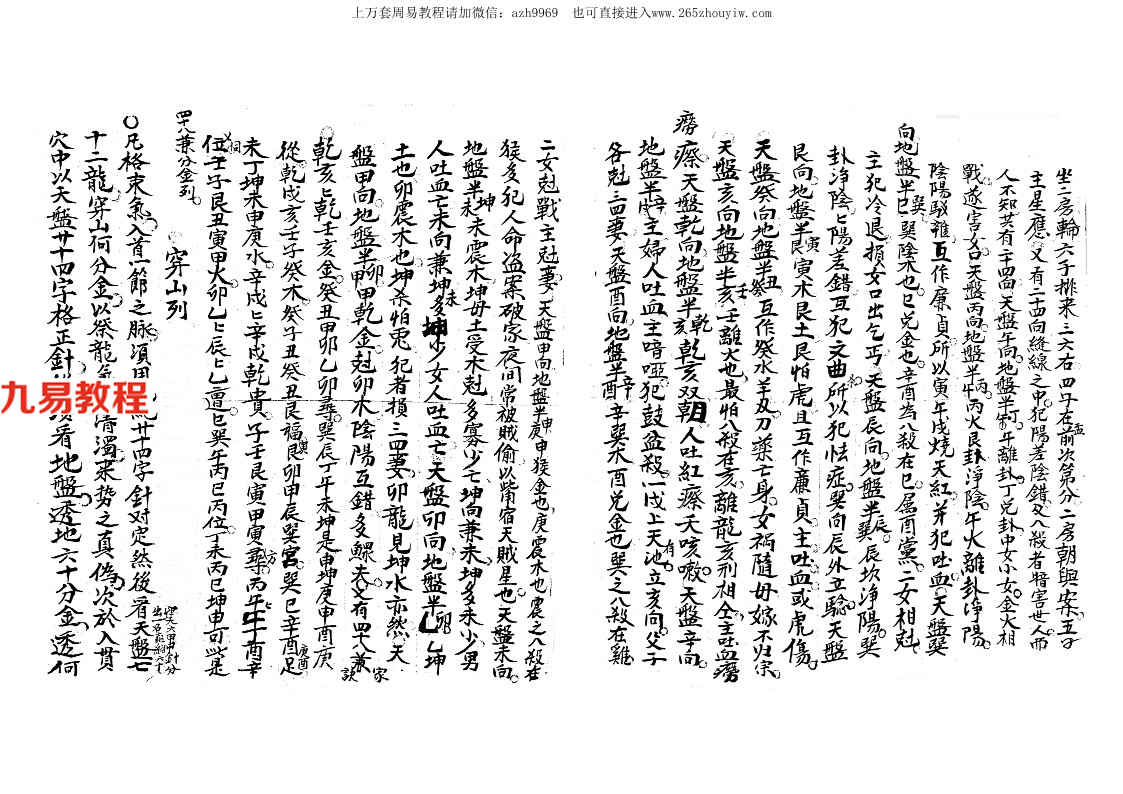 上万套周易教程请加微信：azh9969　也可直接进入www.265zhouyiw.com
坐二房輪六子排來三六右四子在前次第分二房朝與案五子
主星應又有二十四向縫線之中犯陽差陰錯及八殺者將害世人而
人不知其有二十四向天盤午向地盤半丁午離卦丁兌卦中女小女金火相
戰遂害女口天盤丙向地盤半午丙火艮卦淨陰午火離卦淨陽
陰陽駁雜互作廉貞所以寅午戌燒天紅并犯吐血天盤巽
向地盤半巳巽陰木也巳兌金也辛酉為八殺在巳屬酉黨二女相尅
主犯冷退損女口出乞丐天盤辰向地盤半巽辰坎淨陽巽
卦淨陰陰陽差錯互犯文曲所以犯怯症巽向辰外立驗天盤
艮向地盤半寅艮寅木艮土艮怕虎且互作廉貞主吐血或虎傷
天盤癸向地盤半丑癸互作癸水羊刃刀藥亡身女禍隨母嫁不归宗
天盤亥向地盤半壬亥壬離火也最怕八殺在亥離龍亥刑相仝主吐血癆
瘵天盤乾向地盤半亥乾乾亥双朝人吐紅瘵夭咳嗽天盤辛向
地盤半戌辛主婦人吐血主喑啞犯鼓盆殺一戌上天池立亥向父子
各尅二四妻天盤酉向地盤半辛酉辛巽木酉兌金也巽之八殺在雞
二女尅戰主尅妻天盤申向地盤半庚申庚申猴金也庚震木也震之八殺在
猴多犯人命盜案破家夜間常被賊偷以觜宿天賊星也天盤未向
地盤半坤未坤未震木坤母土受木尅多寡少亡坤向兼未坤多未少男
人吐血亡未向兼坤未多坤少女人吐血亡天盤卯向地盤半乙卯乙坤
土也卯震木也坤殺怕兎犯者損三四妻卯龍見坤水亦然天
盤甲向地盤半卯甲甲乾金尅卯木陰陽互錯多鰥夫又有四十八兼
家訣
乾亥亡乾壬亥金癸丑甲卯乙卯尋巽辰丁午未坤是申坤庚申酉庚
從乾戌亥壬子癸木癸子丑癸丑艮福艮卯甲辰巽宮巽巳辛酉足
未丁坤未申庚水辛戌辛戌乾貴子壬艮寅甲寅尋丙午丁酉辛
位壬子艮丑寅甲火卯乙辰乙巽巳丙午丙巳丙位丁未丙巳坤申可此是
四十八兼分金列
穿山列
凡格來氣入首一節之脉須用廿四字針對定然後看天盤七
十二龍穿山何分金以察龍氣清濁來势之真偽次於入貫
穴中以天盤廿四字格正針看地盤透地六十分金透何
九易教程